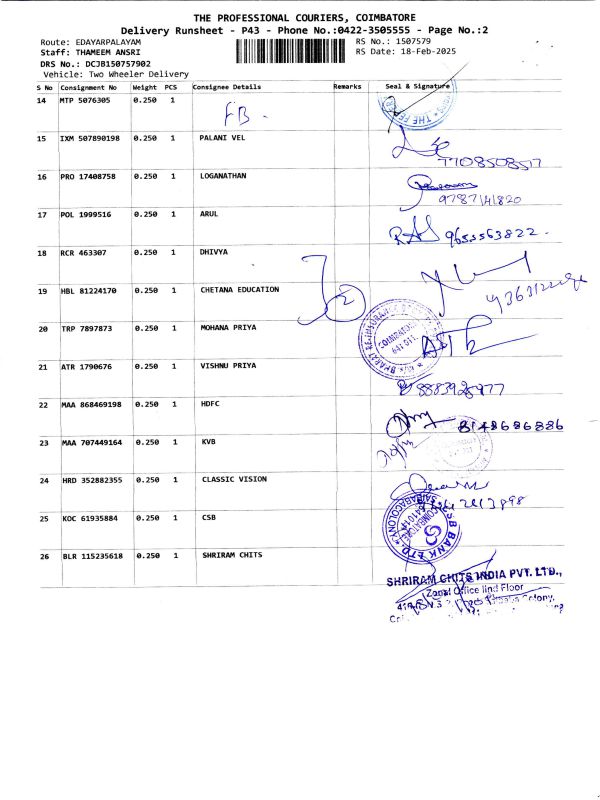 THE PROFESSIONAL COURIERS, COIMBATORE
Delivery Runsheet - P43 - Phone No.:0422-3505555 - Page No.:2
Route: EDAYARPALAYAM RS No.: 1507579
Staff: THAMEEM ANSRI RS Date: 18-Feb-2025
DRS No.: DCJB150757902
Vehicle: Two Wheeler Delivery
S No Consignment No Weight PCS Consignee Details Remarks Seal & Signature
14 MTP 5076305 0.250 1 FB
15 IXM 507890198 0.250 1 PALANI VEL
7708508517
16 PRO 17408758 0.250 1 LOGANATHAN
9787141820
17 POL 1999516 0.250 1 ARUL
9655563822
18 RCR 463307 0.250 1 DHIVYA
19 HBL 81224170 0.250 1 CHETANA EDUCATION 2
20 TRP 7897873 0.250 1 MOHANA PRIYA
21 ATR 1790676 0.250 1 VISHNU PRIYA
22 MAA 868469198 0.250 1 HDFC
8148686886
23 MAA 707449164 0.250 1 KVB
24 HRD 352882355 0.250 1 CLASSIC VISION
25 KOC 61935884 0.250 1 CSB
26 BLR 115235618 0.250 1 SHRIRAM CHITS
SHRIRAM CHITS INDIA PVT. LTD.,
Zonal Office IInd Floor